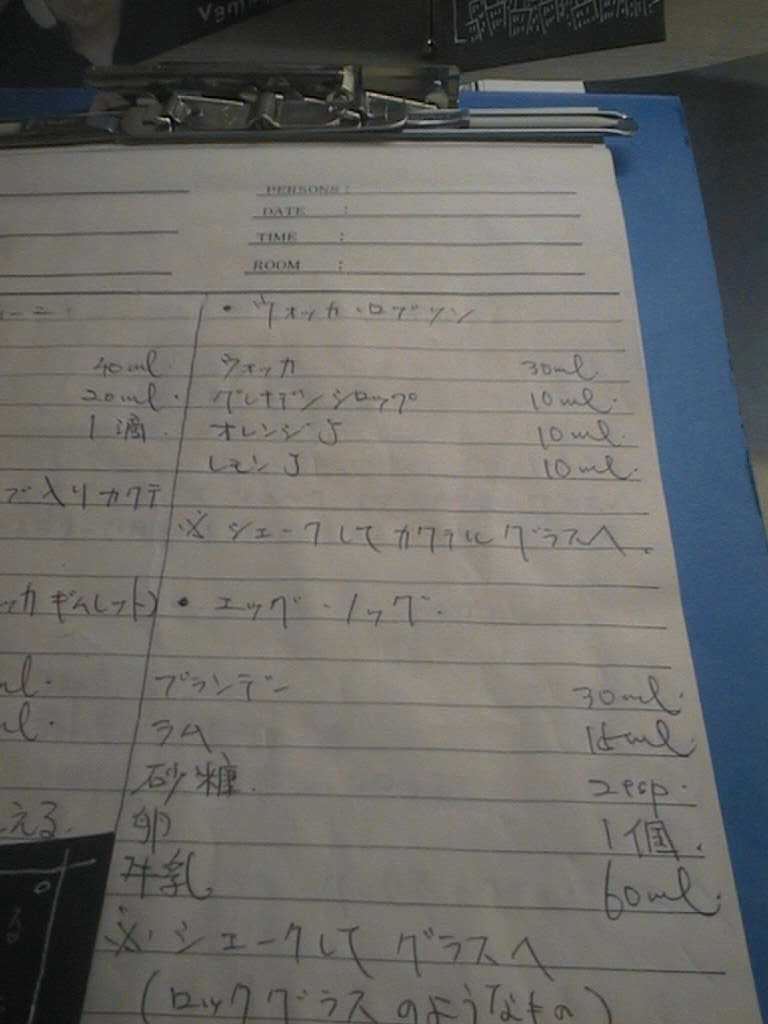 Vam
PERSONS :
DATE :
TIME :
ROOM :
40ml.
20ml.
1滴.
で入りカクテ
ッカギムレット)
ml.
ml.
える.
・ウォッカ・ロブソン
ウォッカ 30ml.
グレナデンシロップ 10ml.
オレンジJ 10ml.
レモンJ 10ml.
※シェークしてカクテルグラスへ.
・エッグ・ノッグ.
ブランデー 30ml.
ラム 15ml.
砂糖. 2tsp.
卵 1個.
牛乳. 60ml.
※シェークしてグラスへ
(ロックグラスのようなもの)